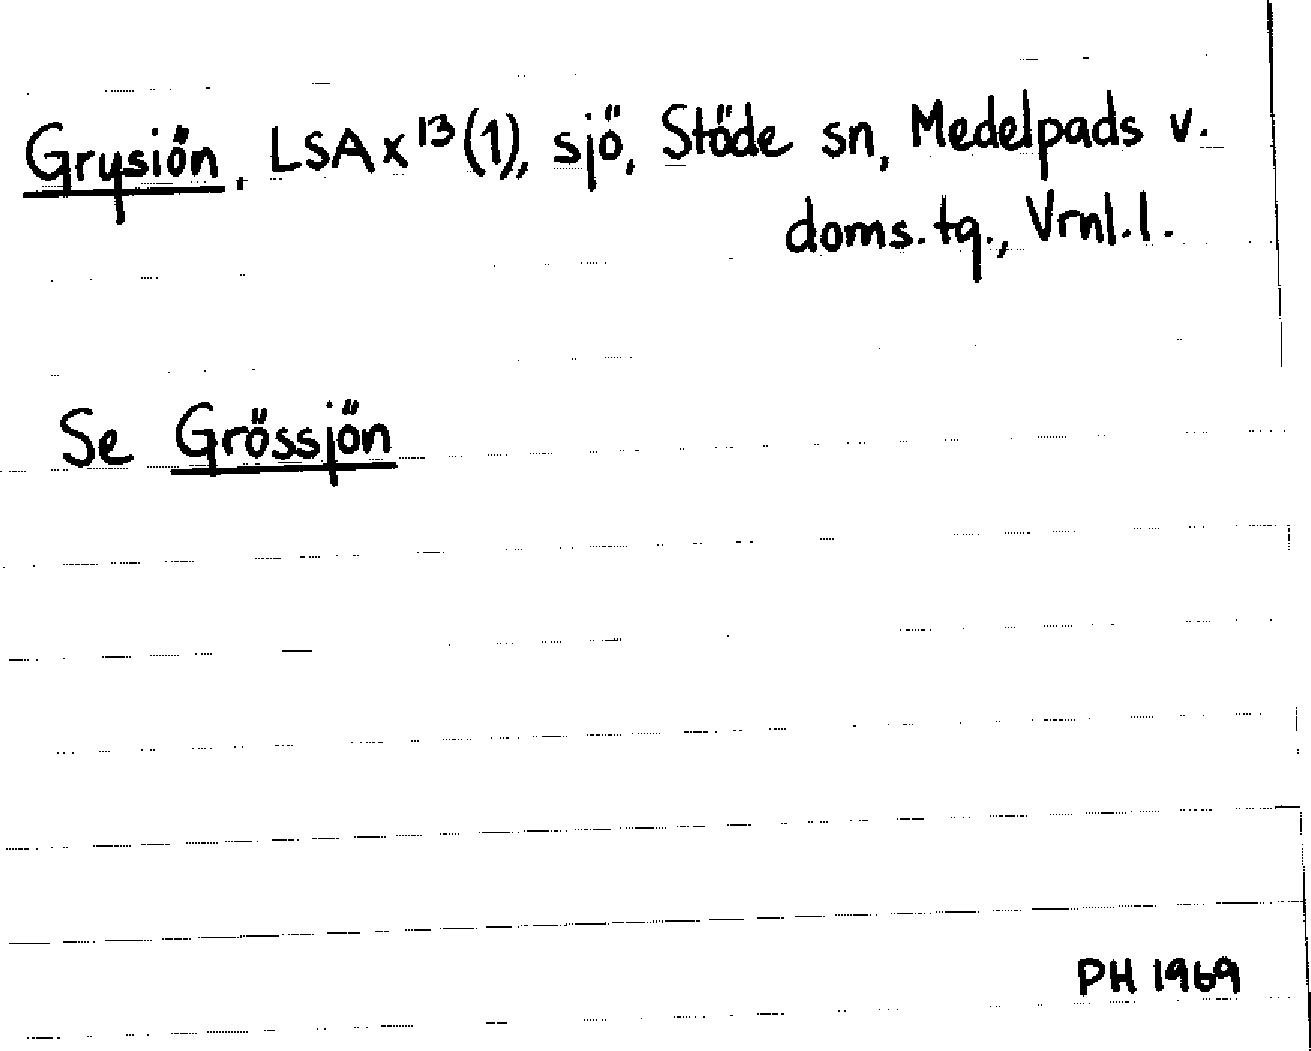 Grysiön, LSA x 13 (1), sjö, Stöde sn, Medelpads v.
doms.tg., Vrnl.l.
Se Grössjön
PH 1969